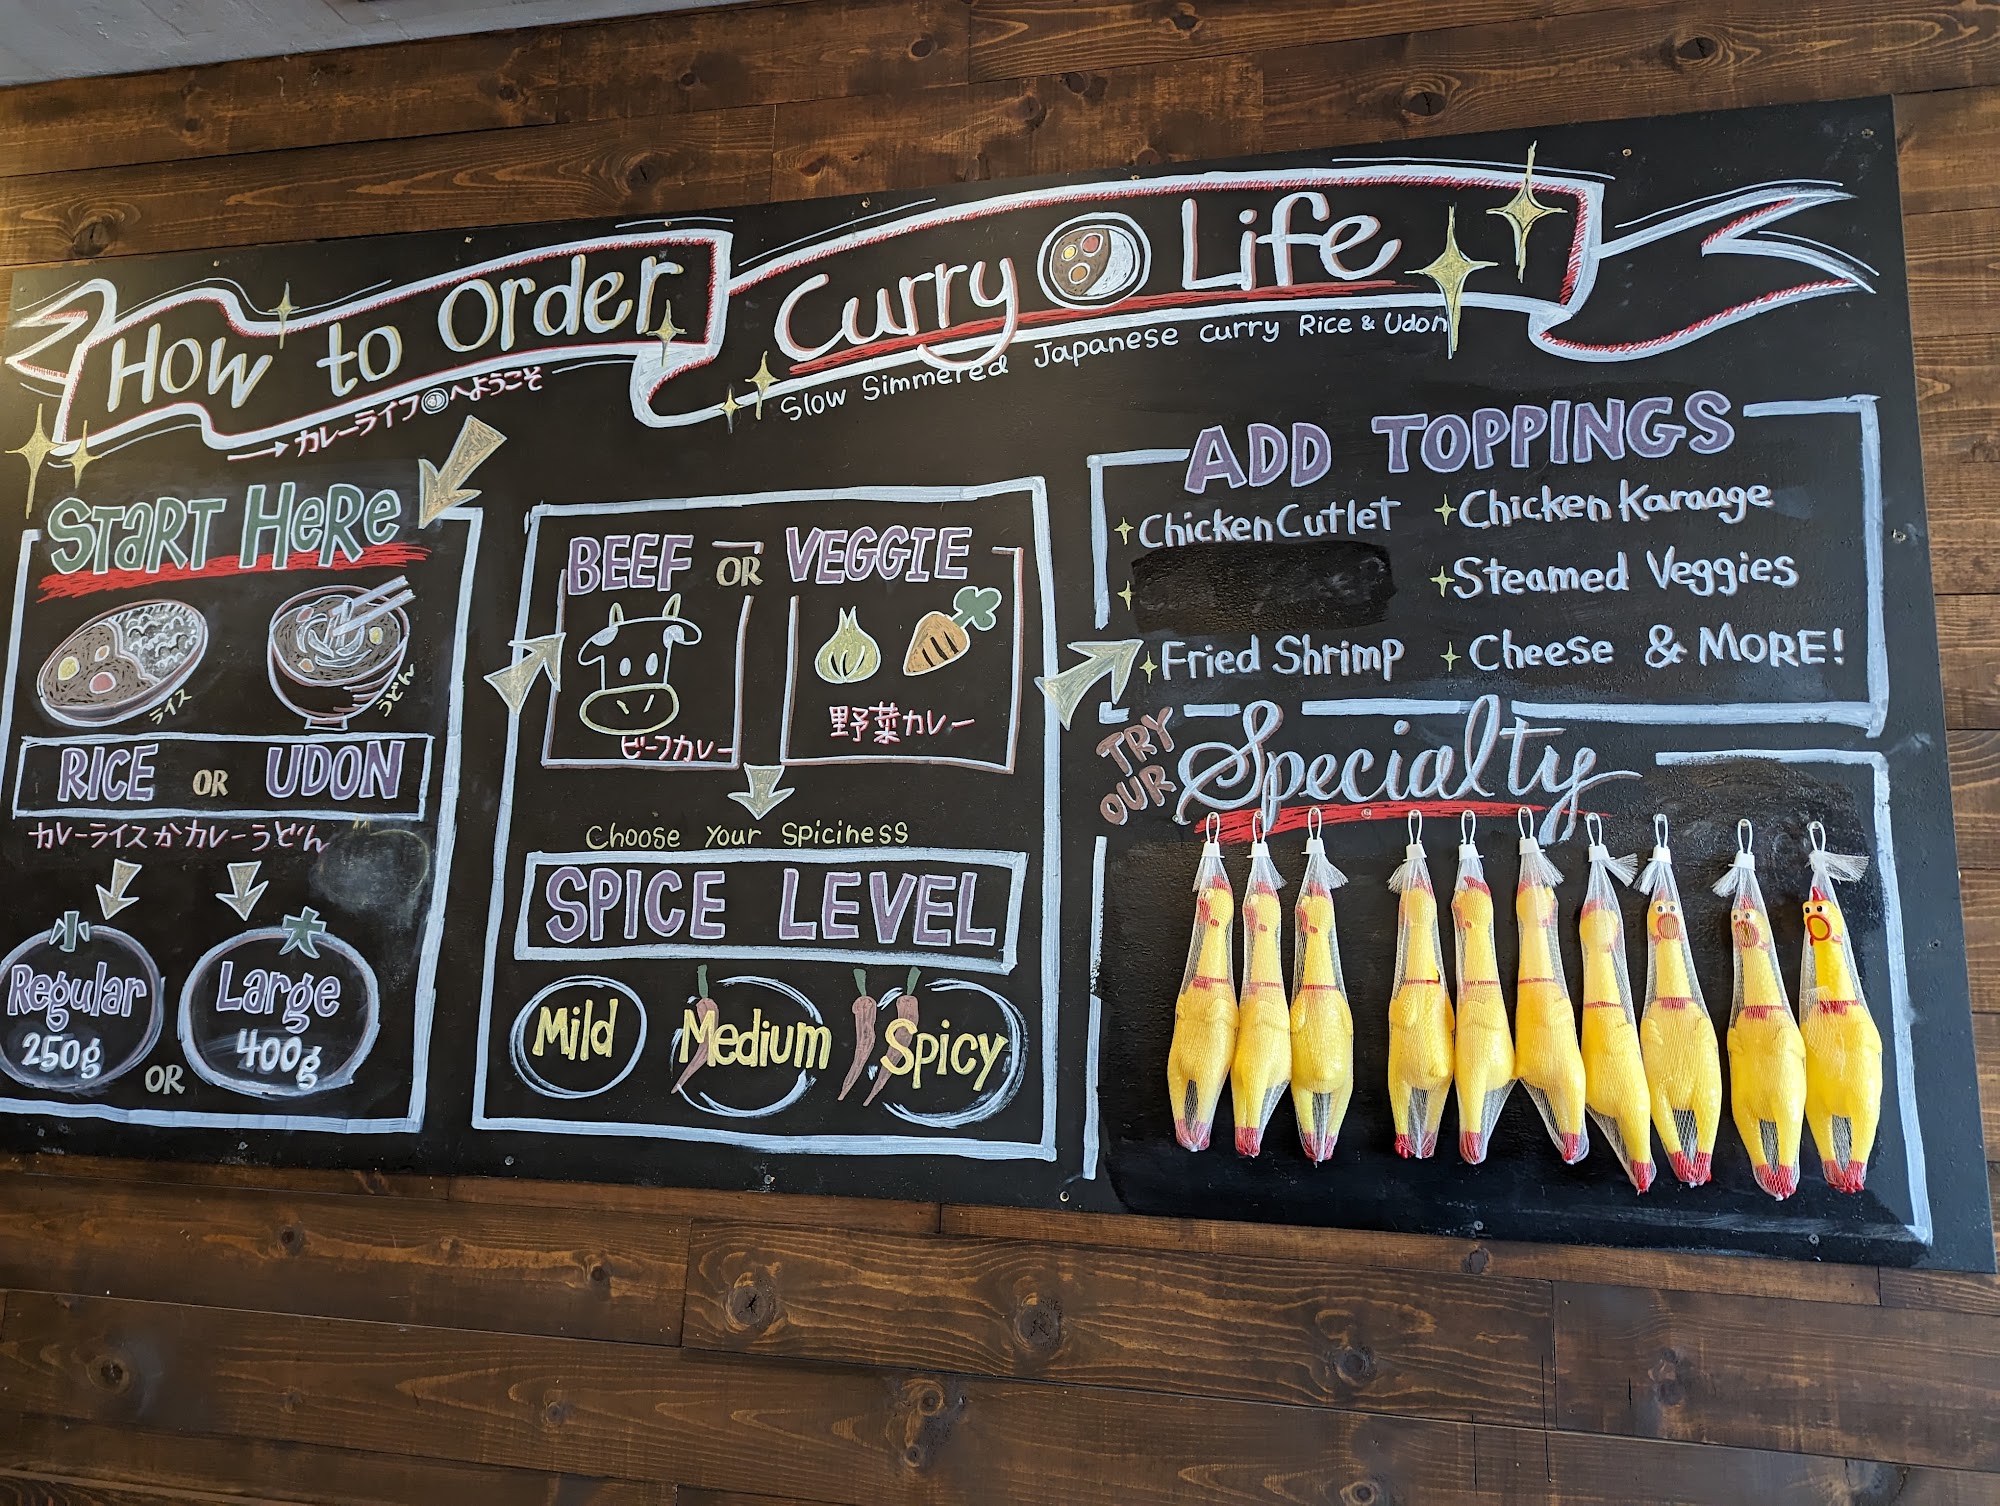 How to Order
Curry Life
Slow Simmered Japanese curry Rice & Udon
カレーライフへようこそ
START HERE
ライス
うどん
RICE OR UDON
カレーライスかカレーうどん
小
Regular
250g
OR
大
Large
400g
BEEF OR VEGGIE
ビーフカレー
野菜カレー
Choose Your Spiciness
SPICE LEVEL
Mild
Medium
Spicy
ADD TOPPINGS
Chicken Cutlet
Fried Shrimp
Chicken Karaage
Steamed Veggies
Cheese & MORE!
TRY
OUR
Specialty